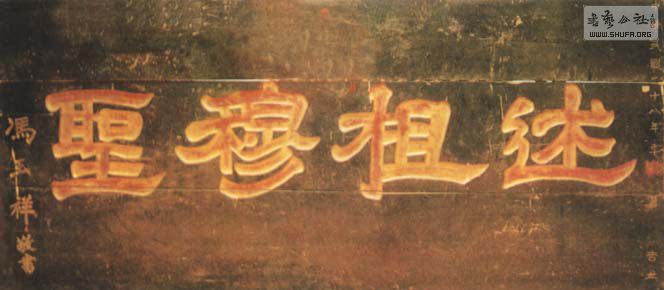 十八年
述祖穆聖
馮玉祥敬書
書藝公社
WWW.SHUFA.ORG